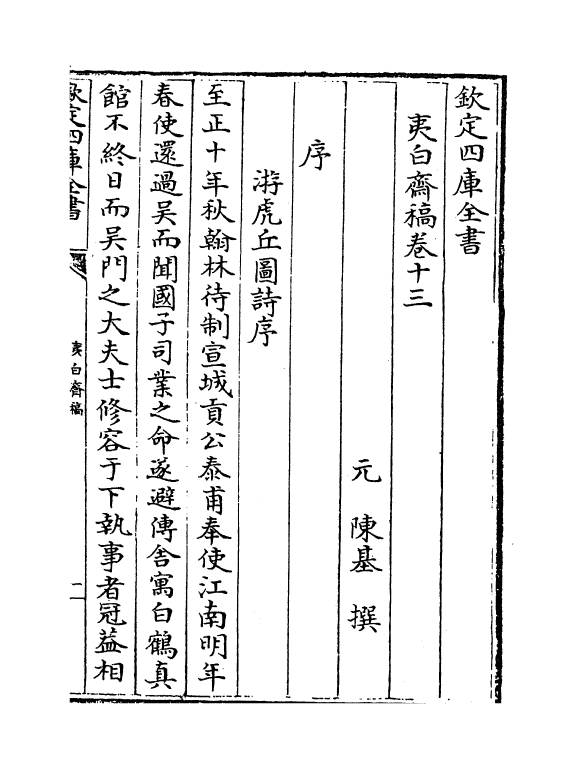 欽定四庫全書
夷白齋稿巻十三
元 陳基 撰
序
游虎丘圖詩序
至正十年秋翰林待制宣城貢公泰甫奉使江南明年
春使還過吳而聞國子司業之命遂避傳舎寓白鶴真
館不終日而吳門之大夫士修容于下執事者冠葢相
欽定四庫全書
夷白齋稿